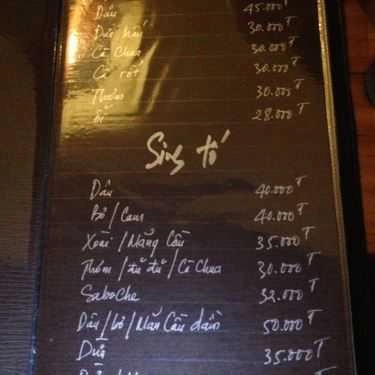 Dâu 45.000T
Dưa hấu 30.000T
Cà Chua 30.000T
Cà rốt 30.000T
Thơm 30.000T
ổi 28.000T
Sing tố
Dâu 40.000T
Bơ / Cam 40.000T
Xoài / Mãng Cầu 35.000T
Thơm / đu đủ / Cà Chua 30.000T
Saboche 32.000T
Dâu / bơ / Mãn Cầu dầm 50.000T
Dừa 35.000T